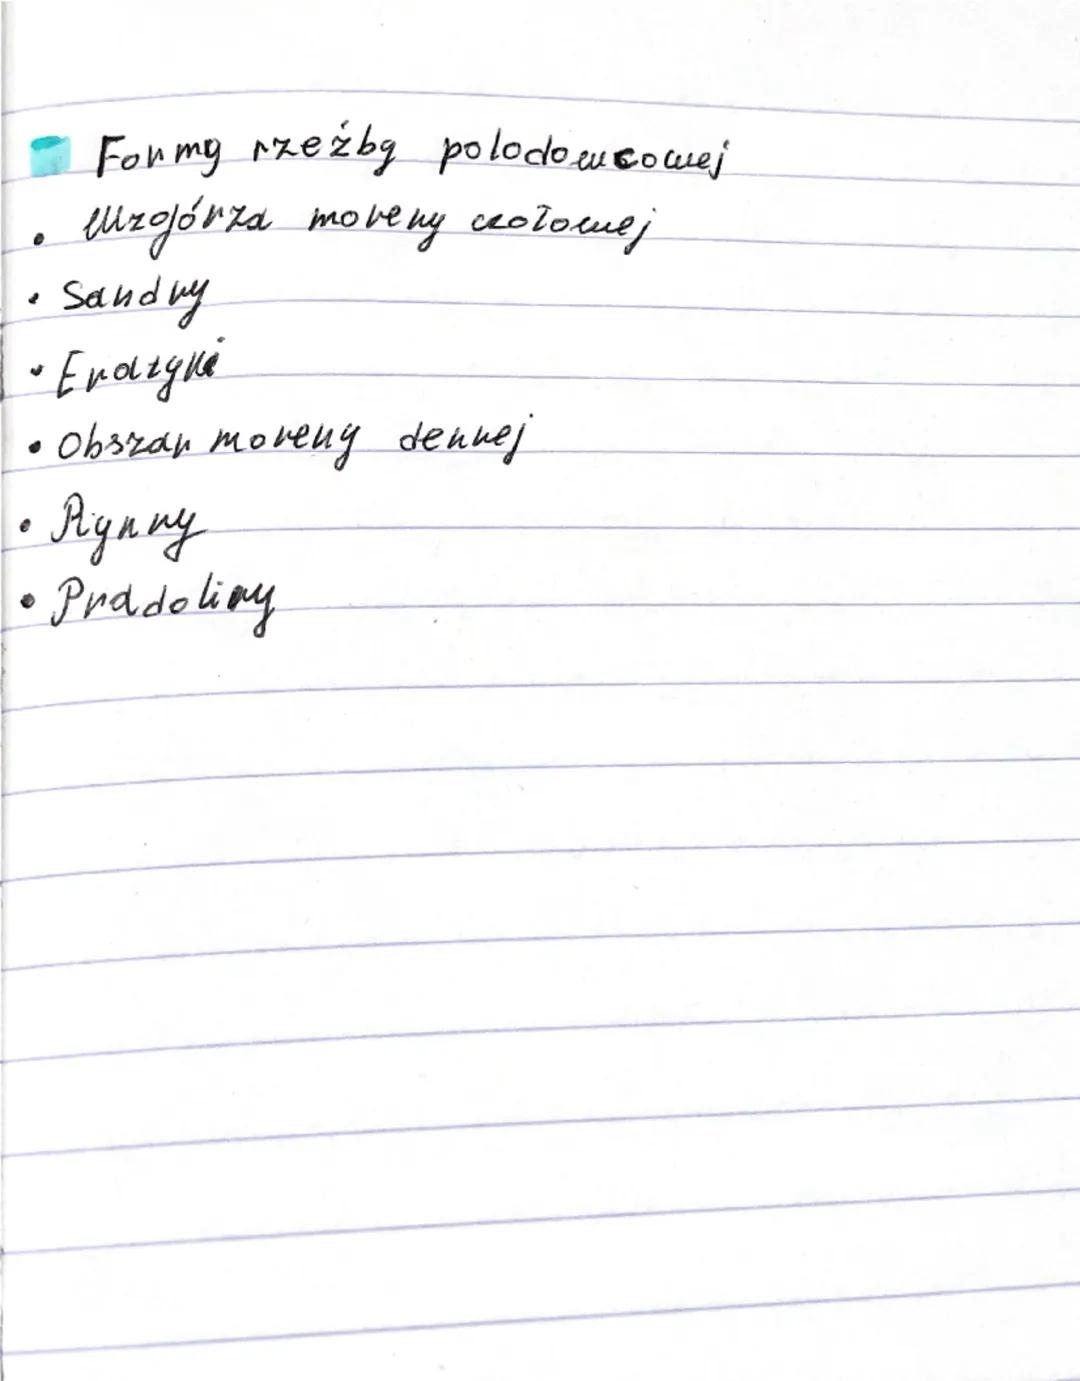 Formy rzeźby polodowcowej
• Wzgórza moreny czołowej
• Sandry
• Eratyki
• Obszar moreny dennej
• Rynny
• Pradoliny